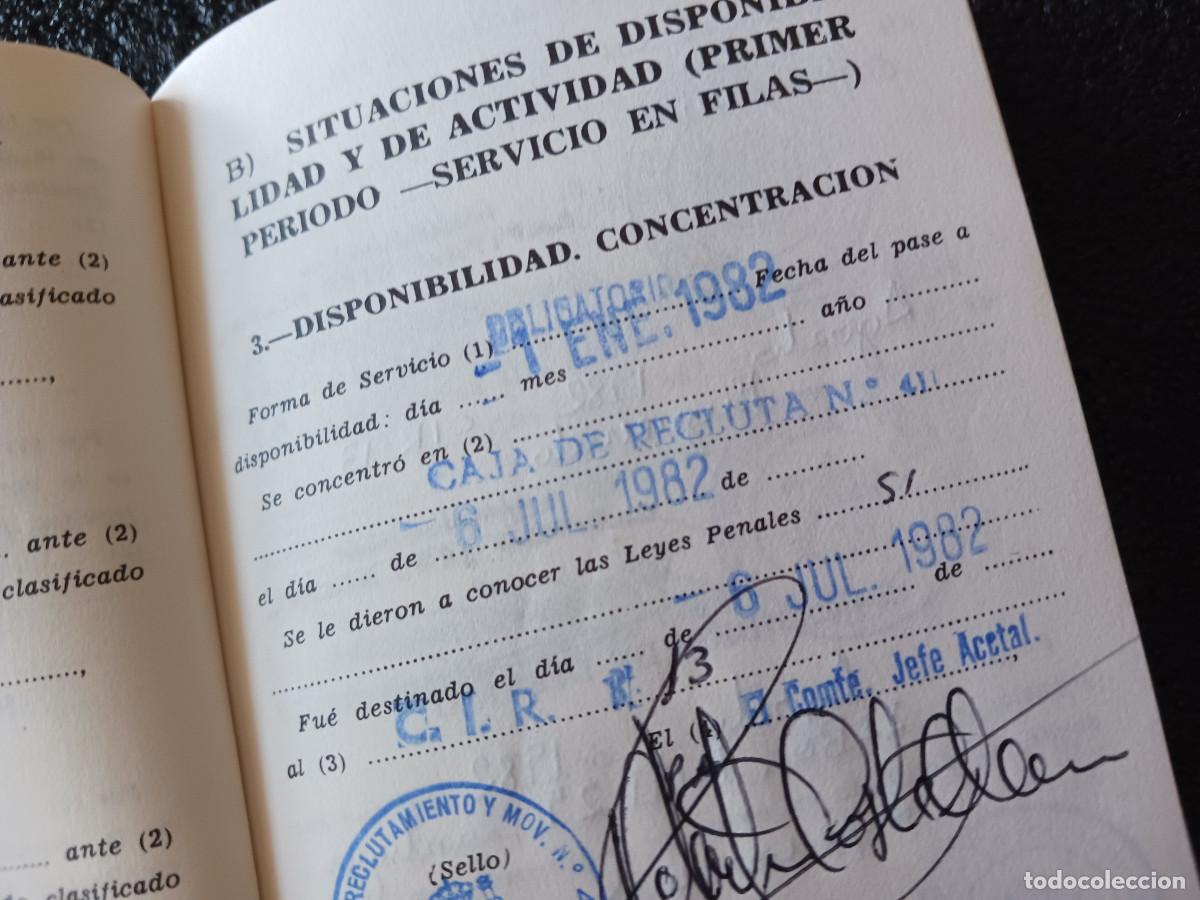 B) SITUACIONES DE DISPONIBI-
LIDAD Y DE ACTIVIDAD (PRIMER
PERIODO —SERVICIO EN FILAS—)
3.—DISPONIBILIDAD. CONCENTRACION
Forma de Servicio (1) OBLIGATORIO Fecha del pase a
disponibilidad: día ...... mes ........ año ........
- 1 ENE. 1982
Se concentró en (2) ........
CAJA DE RECLUTA N.º 411
el día ...... de ........ de ........
- 6 JUL. 1982
Se le dieron a conocer las Leyes Penales ........ SI ........
Fué destinado el día ...... de ........ de ........
- 6 JUL. 1982
al (3) C. I. R. Nº 13
El (4) El Comte. Jefe Acctal.
(Sello)
RECLUTAMIENTO Y MOV. N.º 4
ante (2)
clasificado
ante (2)
clasificado
ante (2)
clasificado
todocoleccion